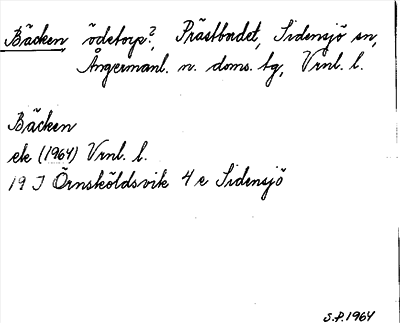 Bäcken ödetorp?, Prästbordet, Sidensjö sn,
Ångermanl. n. doms. tg, Vrnl. l.
Bäcken
ek (1964) Vrnl. l.
19 J Örnsköldsvik 4 e Sidensjö
S.P. 1964